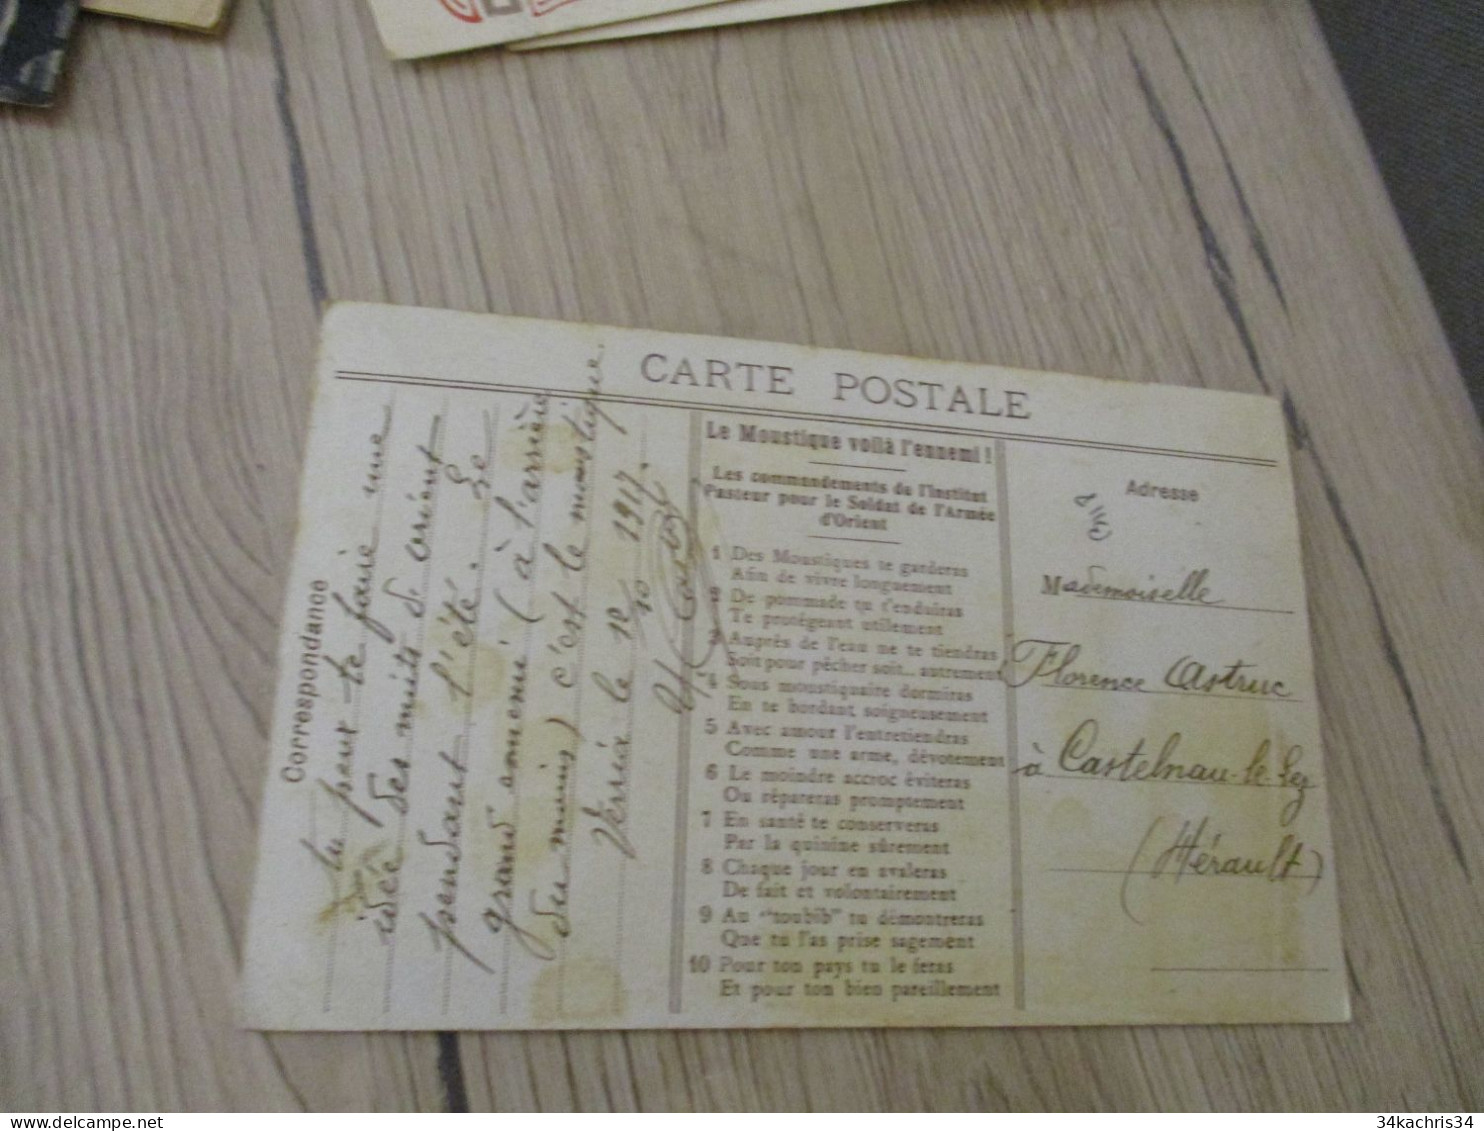 CARTE POSTALE
Correspondance
Tu peux te faire une
idée des nuits d'orient
pendant l'été. Le
grand ennemi (à l'arrière
du moins) c'est le moustique.
Verria le 12/10 1917.
Le Moustique voilà l'ennemi !
Les commandements de l'Institut
Pasteur pour le Soldat de l'Armée
d'Orient
1 Des Moustiques te garderas
Afin de vivre longuement
2 De pommade tu t'enduiras
Te protégeant utilement
3 Auprès de l'eau ne te tiendras
Soit pour pêcher soit... autrement
4 Sous moustiquaire dormiras
En te bordant soigneusement
5 Avec amour l'entretiendras
Comme une arme, dévotement
6 Le moindre accroc éviteras
Ou répareras promptement
7 En santé te conserveras
Par la quinine sûrement
8 Chaque jour en avaleras
De fait et volontairement
9 Au "toubib" tu démontreras
Que tu l'as prise sagement
10 Pour ton pays tu le feras
Et pour ton bien pareillement
Adresse
Mademoiselle
Florence Astruc
à Castelnau-le-Lez
(Hérault)
34kachris34